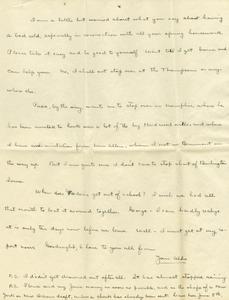 I am a little bit worried about what you say about having
a bad cold, especially in connection with all your spring housework.
Please take it easy and be good to yourself. Wait till I get home and
can help you. No, I shall not stop over at the Thompsons or any-
where else.
Russ, by the way wants me to stop over in Memphis, where he
has been invited to look over a lot of the big Hardwood mills and where
I have an invitation from Mr. Allen, whom I met in Beaumont on
the way up. But I am quite sure I don't care to stop about at Burlington
Iowa.
When does get out of school? I wish we had all
that month to loaf it around together. George + I can hardly realize
it is only ten days now before we leave. Well - I must get at my re-
port now. Goodnight, + love to you all from
Your Aldo
P.S. I didn't get drowned out after all. It has almost stopped raining
P.S. Please send me your money as soon as possible, and as the shape of a New
York or New Orleans draft, unless a check has already been sent. before June 5th.